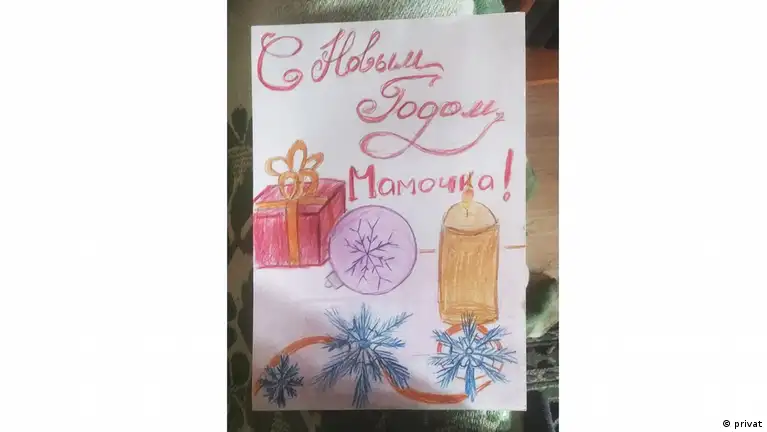 С Новым
Годом,
Мамочка!
© privat